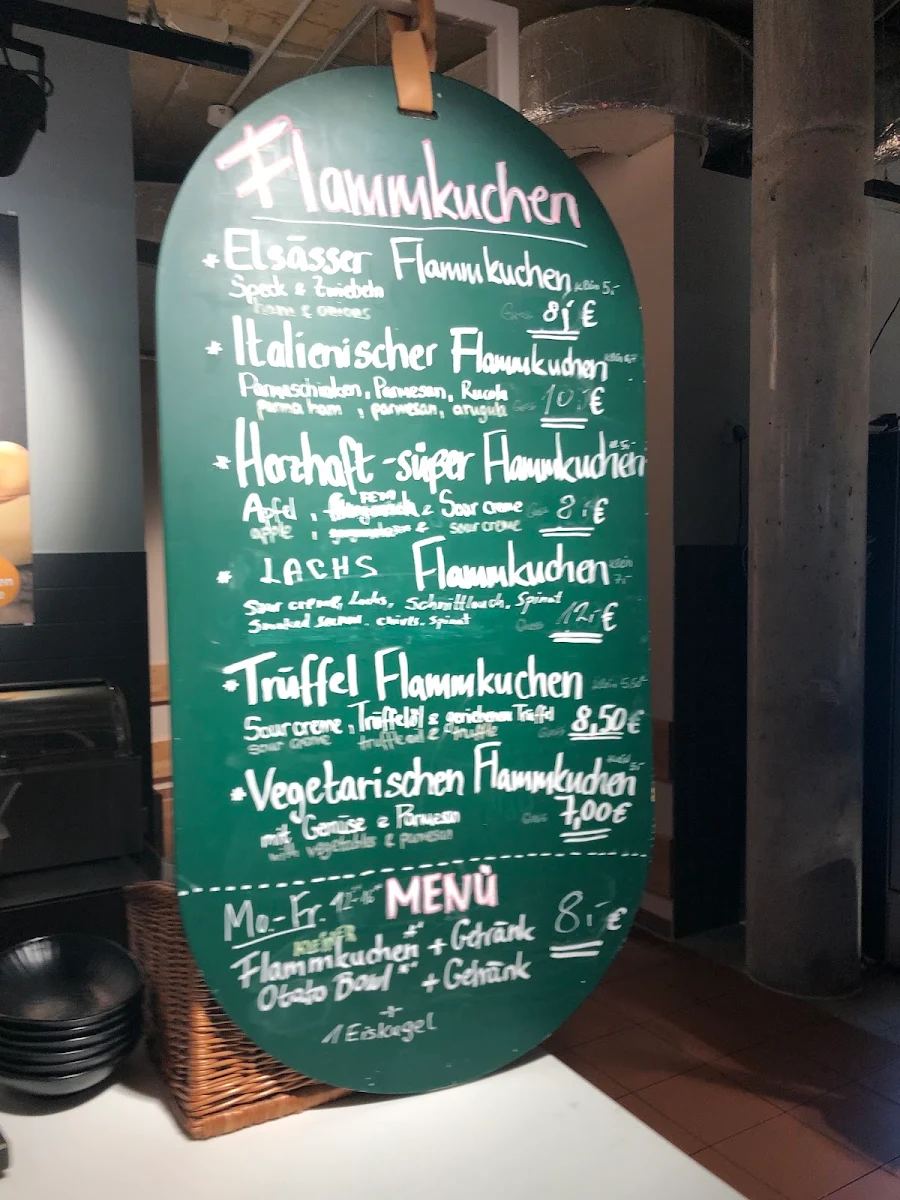 Flammkuchen
* Elsässer Flammkuchen klein 5,-
Speck & Zwiebeln
ham & onions Gross 8,- €
* Italienischer Flammkuchen klein
Parmaschinken, Parmesan, Rucola
parma ham, parmesan, arugula Gross 10,- €
* Herzhaft-süßer Flammkuchen 5,-
Apfel, FETA & Sour creme 8,- €
apple, & sour creme
* LACHS Flammkuchen klein 7,-
Sour creme, Lachs, Schnittlauch, Spinat
Smoked salmon, chives, spinat Gross 12,- €
* Trüffel Flammkuchen klein 5,50
Sour creme, Trüffelöl & geriebenen Trüffel Gross 8,50 €
sour creme truffle oil & truffle
* Vegetarischen Flammkuchen 5,-
mit Gemüse & Parmesan Gross 7,00 €
with vegetables & parmesan
Mo.-Fr. MENÜ
KLEINER
Flammkuchen + Getränk 8,- €
Otato Bowl + Getränk
+
1 Eiskugel